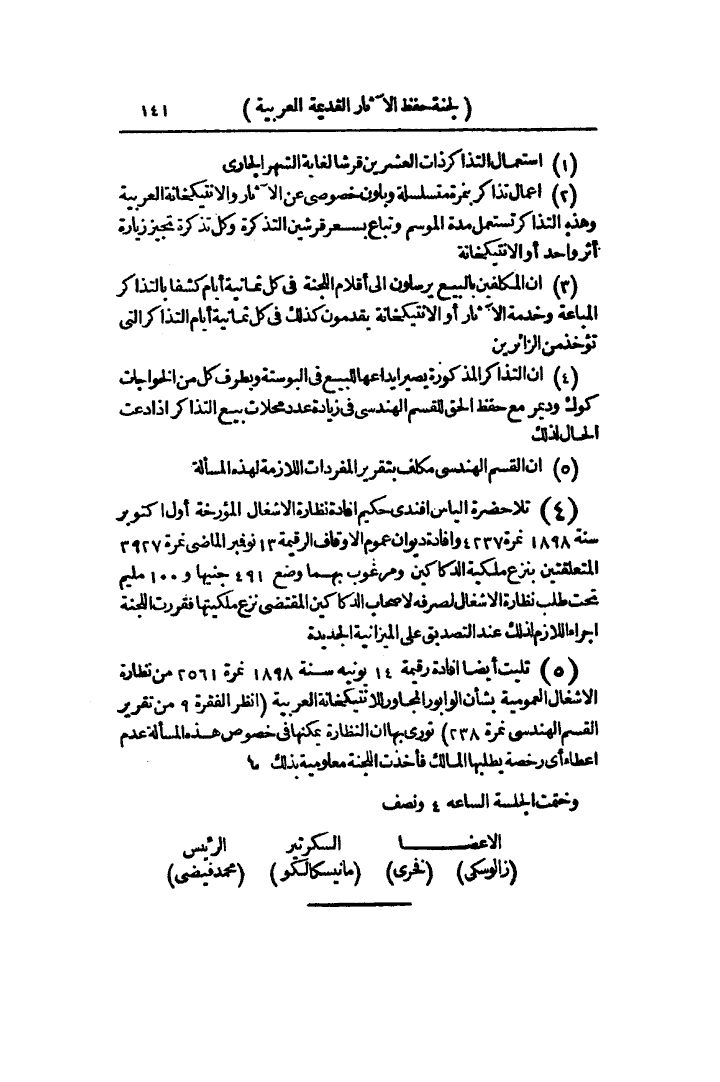 (لجنة حفظ الآثار القديمة العربية) ١٤١
(١) استعمال التذاكر ذات العشرين قرشا لغاية الشهر الجارى
(٢) اعمال تذاكر بنمرة متسلسلة وبلون خصوصى عن الآثار والانتيكخانة العربية
وهذه التذاكر تستعمل مدة الموسم وتباع بسعر قرشين التذكرة وكل تذكرة تجيز زيارة
أثر واحد أو الانتيكخانة
(٣) ان المكلفين بالبيع يرسلون الى أقلام اللجنة فى كل ثمانية أيام كشفا بالتذاكر
المباعة وخدمة الآثار أو الانتيكخانة يقدمون كذلك فى كل ثمانية أيام التذاكر التى
تؤخذ من الزائرين
(٤) ان التذاكر المذكورة يصير ايداعها للبيع فى البوستة وبطرف كل من الخواجات
كوك وديمر مع حفظ الحق للقسم الهندسى فى زيادة عدد محلات بيع التذاكر اذا دعت
الحال لذلك
(٥) ان القسم الهندسى مكلف بتقرير المفردات اللازمة لهذه المسألة
(٤) تلا حضرة الياس افندى حكيم افادة نظارة الاشغال المؤرخة أول اكتوبر
سنة ١٨٩٨ نمرة ٤٢٣٧ وافادة ديوان عموم الاوقاف الرقيمة ١٣ نوفمبر الماضى نمرة ٣٩٢٧
المتعلقتين بنزع ملكية الدكاكين ومرغوب بهما وضع ٤٩١ جنيها و ١٠٠ مليم
تحت طلب نظارة الاشغال لصرفه لاصحاب الدكاكين المقتضى نزع ملكيتها فقررت اللجنة
اجراء اللازم لذلك عند التصديق على الميزانية الجديدة
(٥) تليت أيضا افادة رقيمة ١٤ يونيه سنة ١٨٩٨ نمرة ٢٥٦١ من نظارة
الاشغال العمومية بشأن الوابور المجاور للانتيكخانة العربية (انظر الفقرة ٩ من تقرير
القسم الهندسى نمرة ٢٣٨) تورى بها ان النظارة يمكنها فى خصوص هذه المسألة عدم
اعطاء أى رخصة يطلبها المالك فأخذت اللجنة معلومية بذلك
وختمت الجلسة الساعه ٤ ونصف
الاعضـــا السكرتير الرئيس
(زالوسكى) (فخرى) (مانيسكالكو) (محمد فيضى)